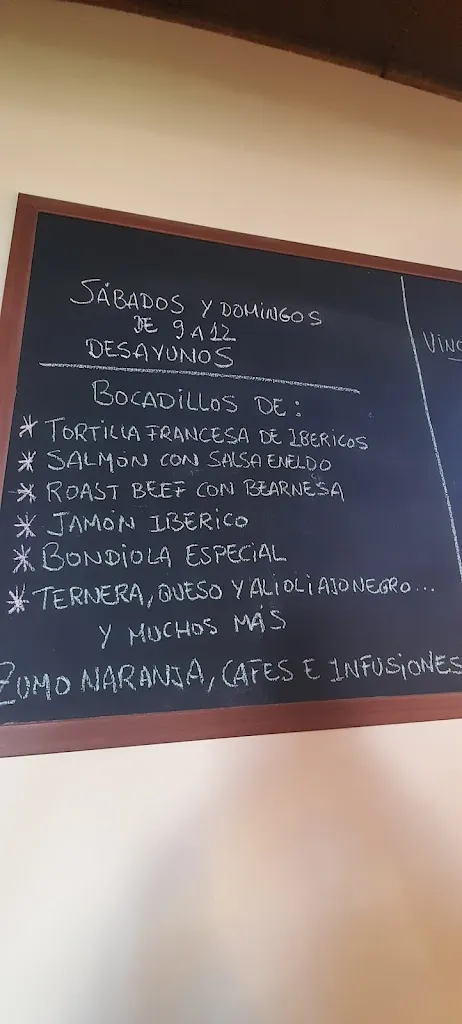 SÁBADOS Y DOMINGOS
DE 9 A 12
DESAYUNOS
BOCADILLOS DE:
* TORTILLA FRANCESA DE IBERICOS
* SALMÓN CON SALSA ENELDO
* ROAST BEEF CON BEARNESA
* JAMÓN IBERICO
* BONDIOLA ESPECIAL
* TERNERA, QUESO Y ALIOLI AJONEGRO...
Y MUCHOS MÁS
ZUMO NARANJA, CAFES E INFUSIONES